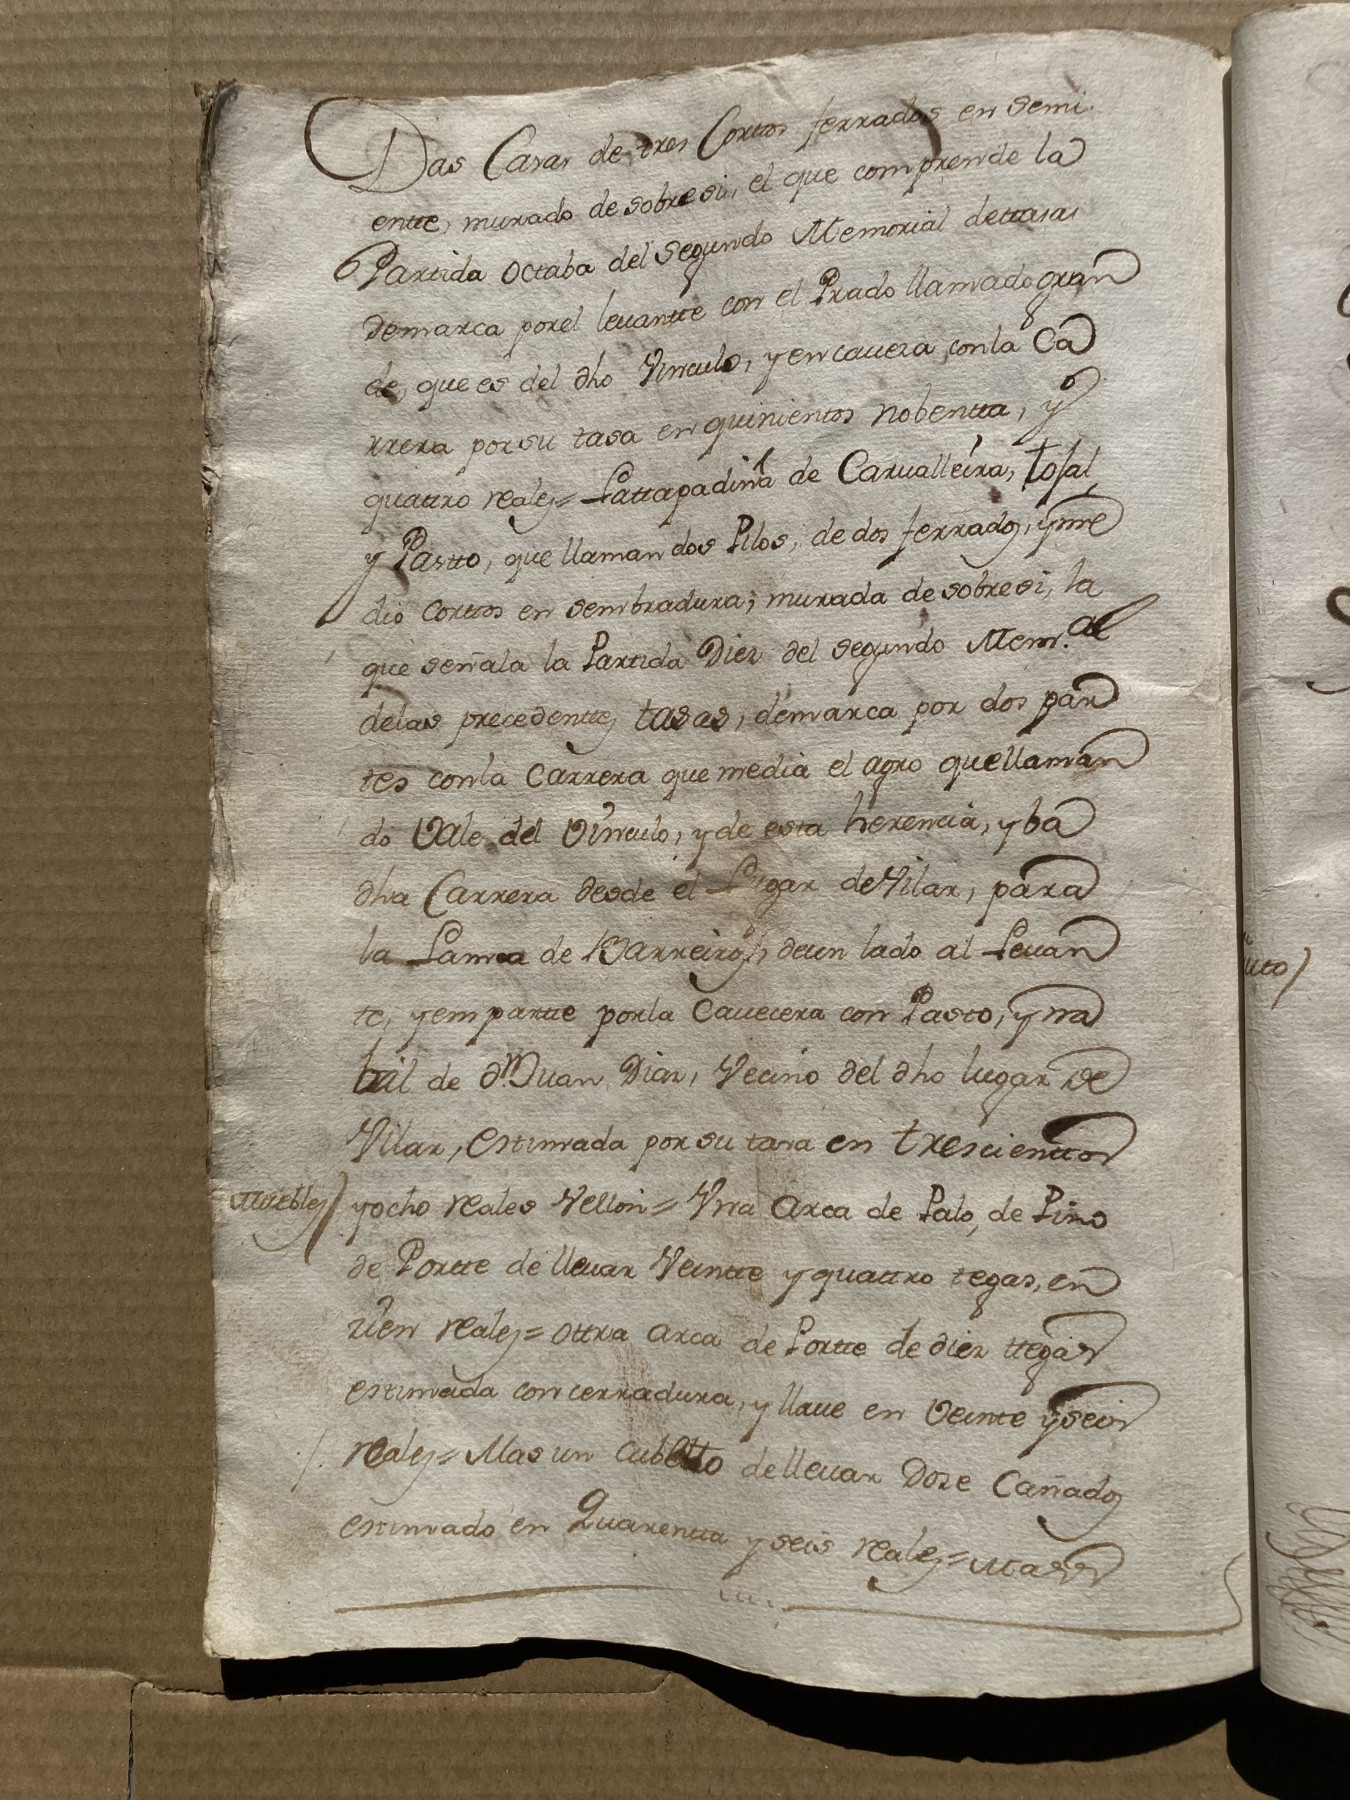 Das Casas de tres Cortos ferrados en semi
entte, murado de sobresi, el que comprende la
Partida octaba del segundo Memorial dettasas
demarca porel levantte con el Prado llamado gran
de, que es del dho Vinculo, y en cavera con la Ca
rrera por su tasa en quinientos nobentta, y
quattro reales = Lattapadiña de Carvalleira, tojal,
y Pastto, que llaman dos Pilos, de dos ferrados, y me
dio cortos en sembradura; murada de sobresi, la
que señala la Partida Diez del segundo Mem.al
delas precedenttes tasas, demarca por dos par
tes conla Carrera que media el agro quellaman
do Vale del Vinculo, y de esta herencia, y ba
dha Carrera desde el Lugar de Vilar, para
la Lama de Barreiros, deun lado al Levan
te, y em partte porla Cavecera con Pasto, y na
bal de dn Juan Diaz, Vecino del dho lugar de
Vilar, estimada por su tasa en trescienttos
Muebles) y ocho reales Vellon = Una Arca de Palo, de Pino
de Portte de llevar Veintte y quattro tegas, en
cien reales = ottra Arca de Portte de diez ttegas
estimada con cerradura, y llave en Veinte y seis
reales = Mas un Cubetto de llevar Doze Cañados
estimado en Quarentta y seis reales = Mas